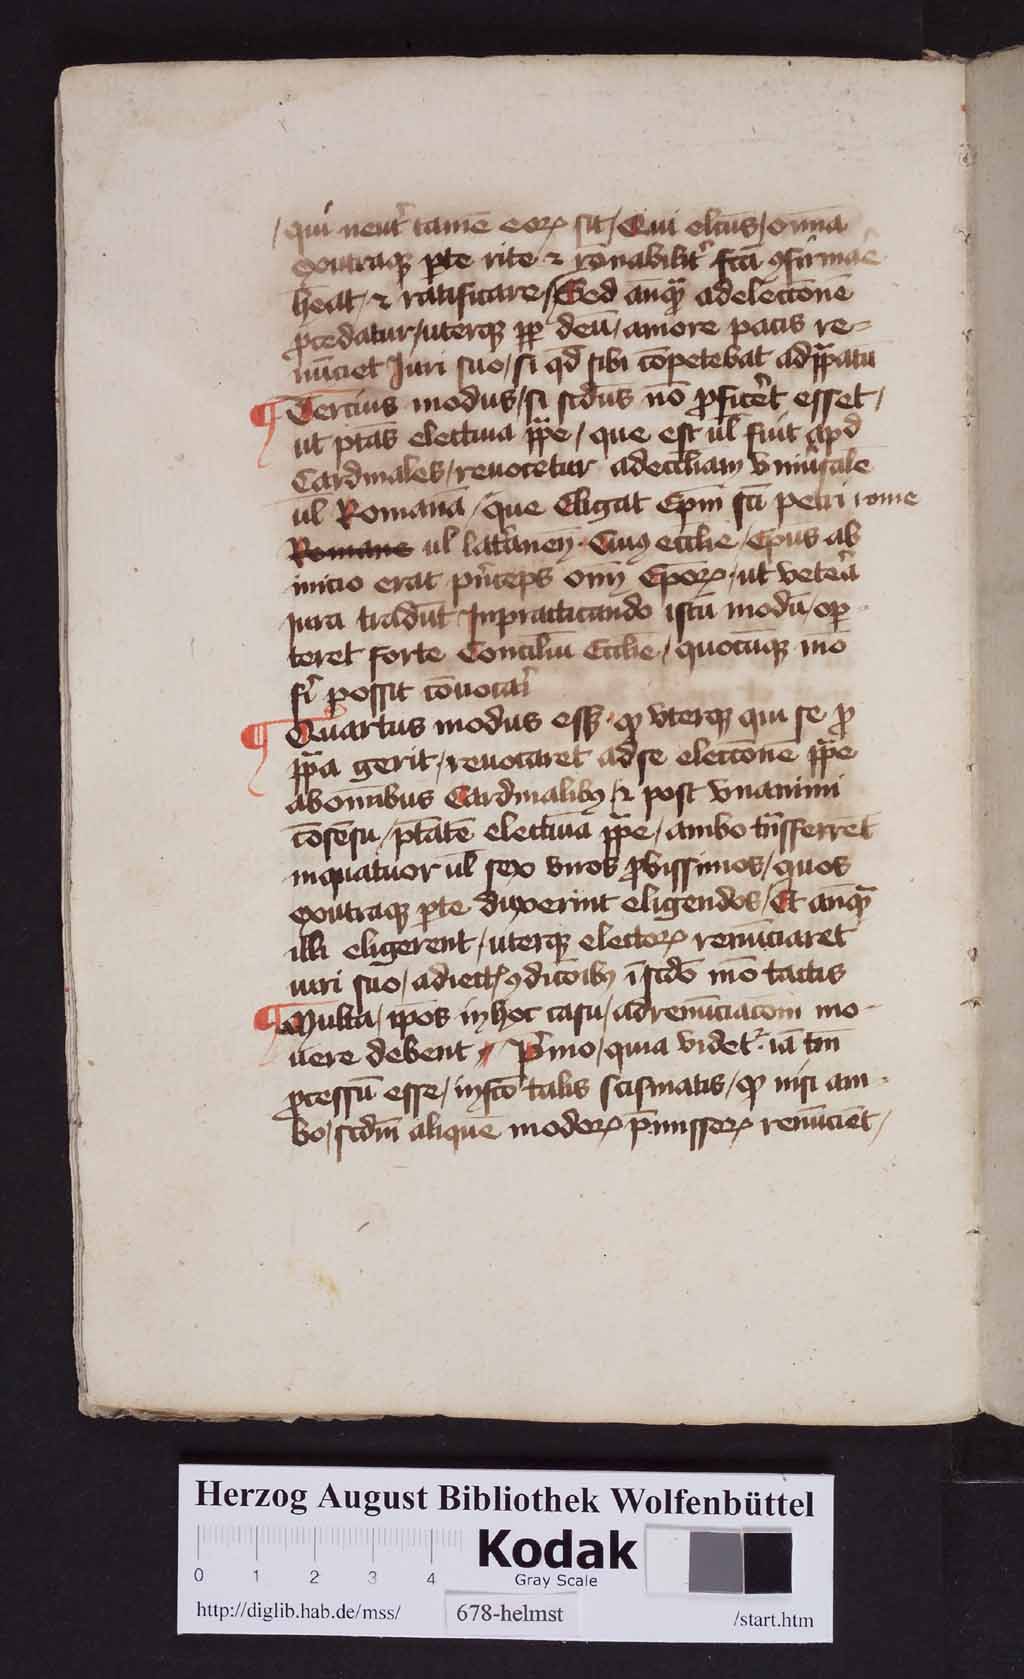 / qui neut͛ tamē eoꝝ sit / Qui elcūs / om̄ia
exutraqꝫ ꝑte rite ⁊ rōnabilit͛ fcā ꝯfirmāe
hēat / ⁊ ratificare / Sed anqᷓ adelectōnē
ꝓcedatur / uterqꝫ ꝓp̄ deū / amore pacis re-
nūciet Iuri suo / si qd̄ sibi cōpetebat adpp̄atū
¶ Tercius modus / si scdūs nō ꝓficēt esset /
ut ptās electiua pp̄e / que est ul̄ fuit apd
Cardīales / reuocetur adeccliam vniūsalē
ul̄ Romanā / que Eligat Ep̄m sc̄i petri rome
Romane ul̄ lat͛aneñ. Cuiꝰ ecclie / Ep̄us ab
inicio erat pͥnceps oīm Ep̄oꝝ · ut veteᷓa
iura tradūt Inpracticando istū modū / opor-
teret forte Conciliū Ecclie / quocūqꝫ mō
fī possit cōuocaī
¶ Quartus modus essꝫ · ꝙ vterqꝫ qui se ꝓ
pp̄a gerit / reuocaret adse electōnē pp̄e
abomībus Cardīalibꝫ / ⁊ post vnanimi
cōsēsu / ptātē electiuā pp̄e / ambo tn̄sferrēt
inquatuor ul̄ sex viros ꝓbissimos / quos
exutraqꝫ ꝑte duxerint eligendos / Et anqᷓ
illi eligerent / uterqꝫ electoꝝ renūciaret
iuri suo / adiect͛ ꝯdicōibꝫ ī scdō mō tactis
¶ Multa / ip̄os in hoc casu / adrenūciacōm mo-
uere debent // Pͥmo / quia videt͛ · iā tm̄
ꝓcessū esse / in fc̄o talis scismatis / ꝙ nisi am-
bo / scdm̄ aliquē modoꝝ p̄missoꝝ renūciēt /
Herzog August Bibliothek Wolfenbüttel
0 1 2 3 4
Kodak
Gray Scale
http://diglib.hab.de/mss/ 678-helmst /start.htm